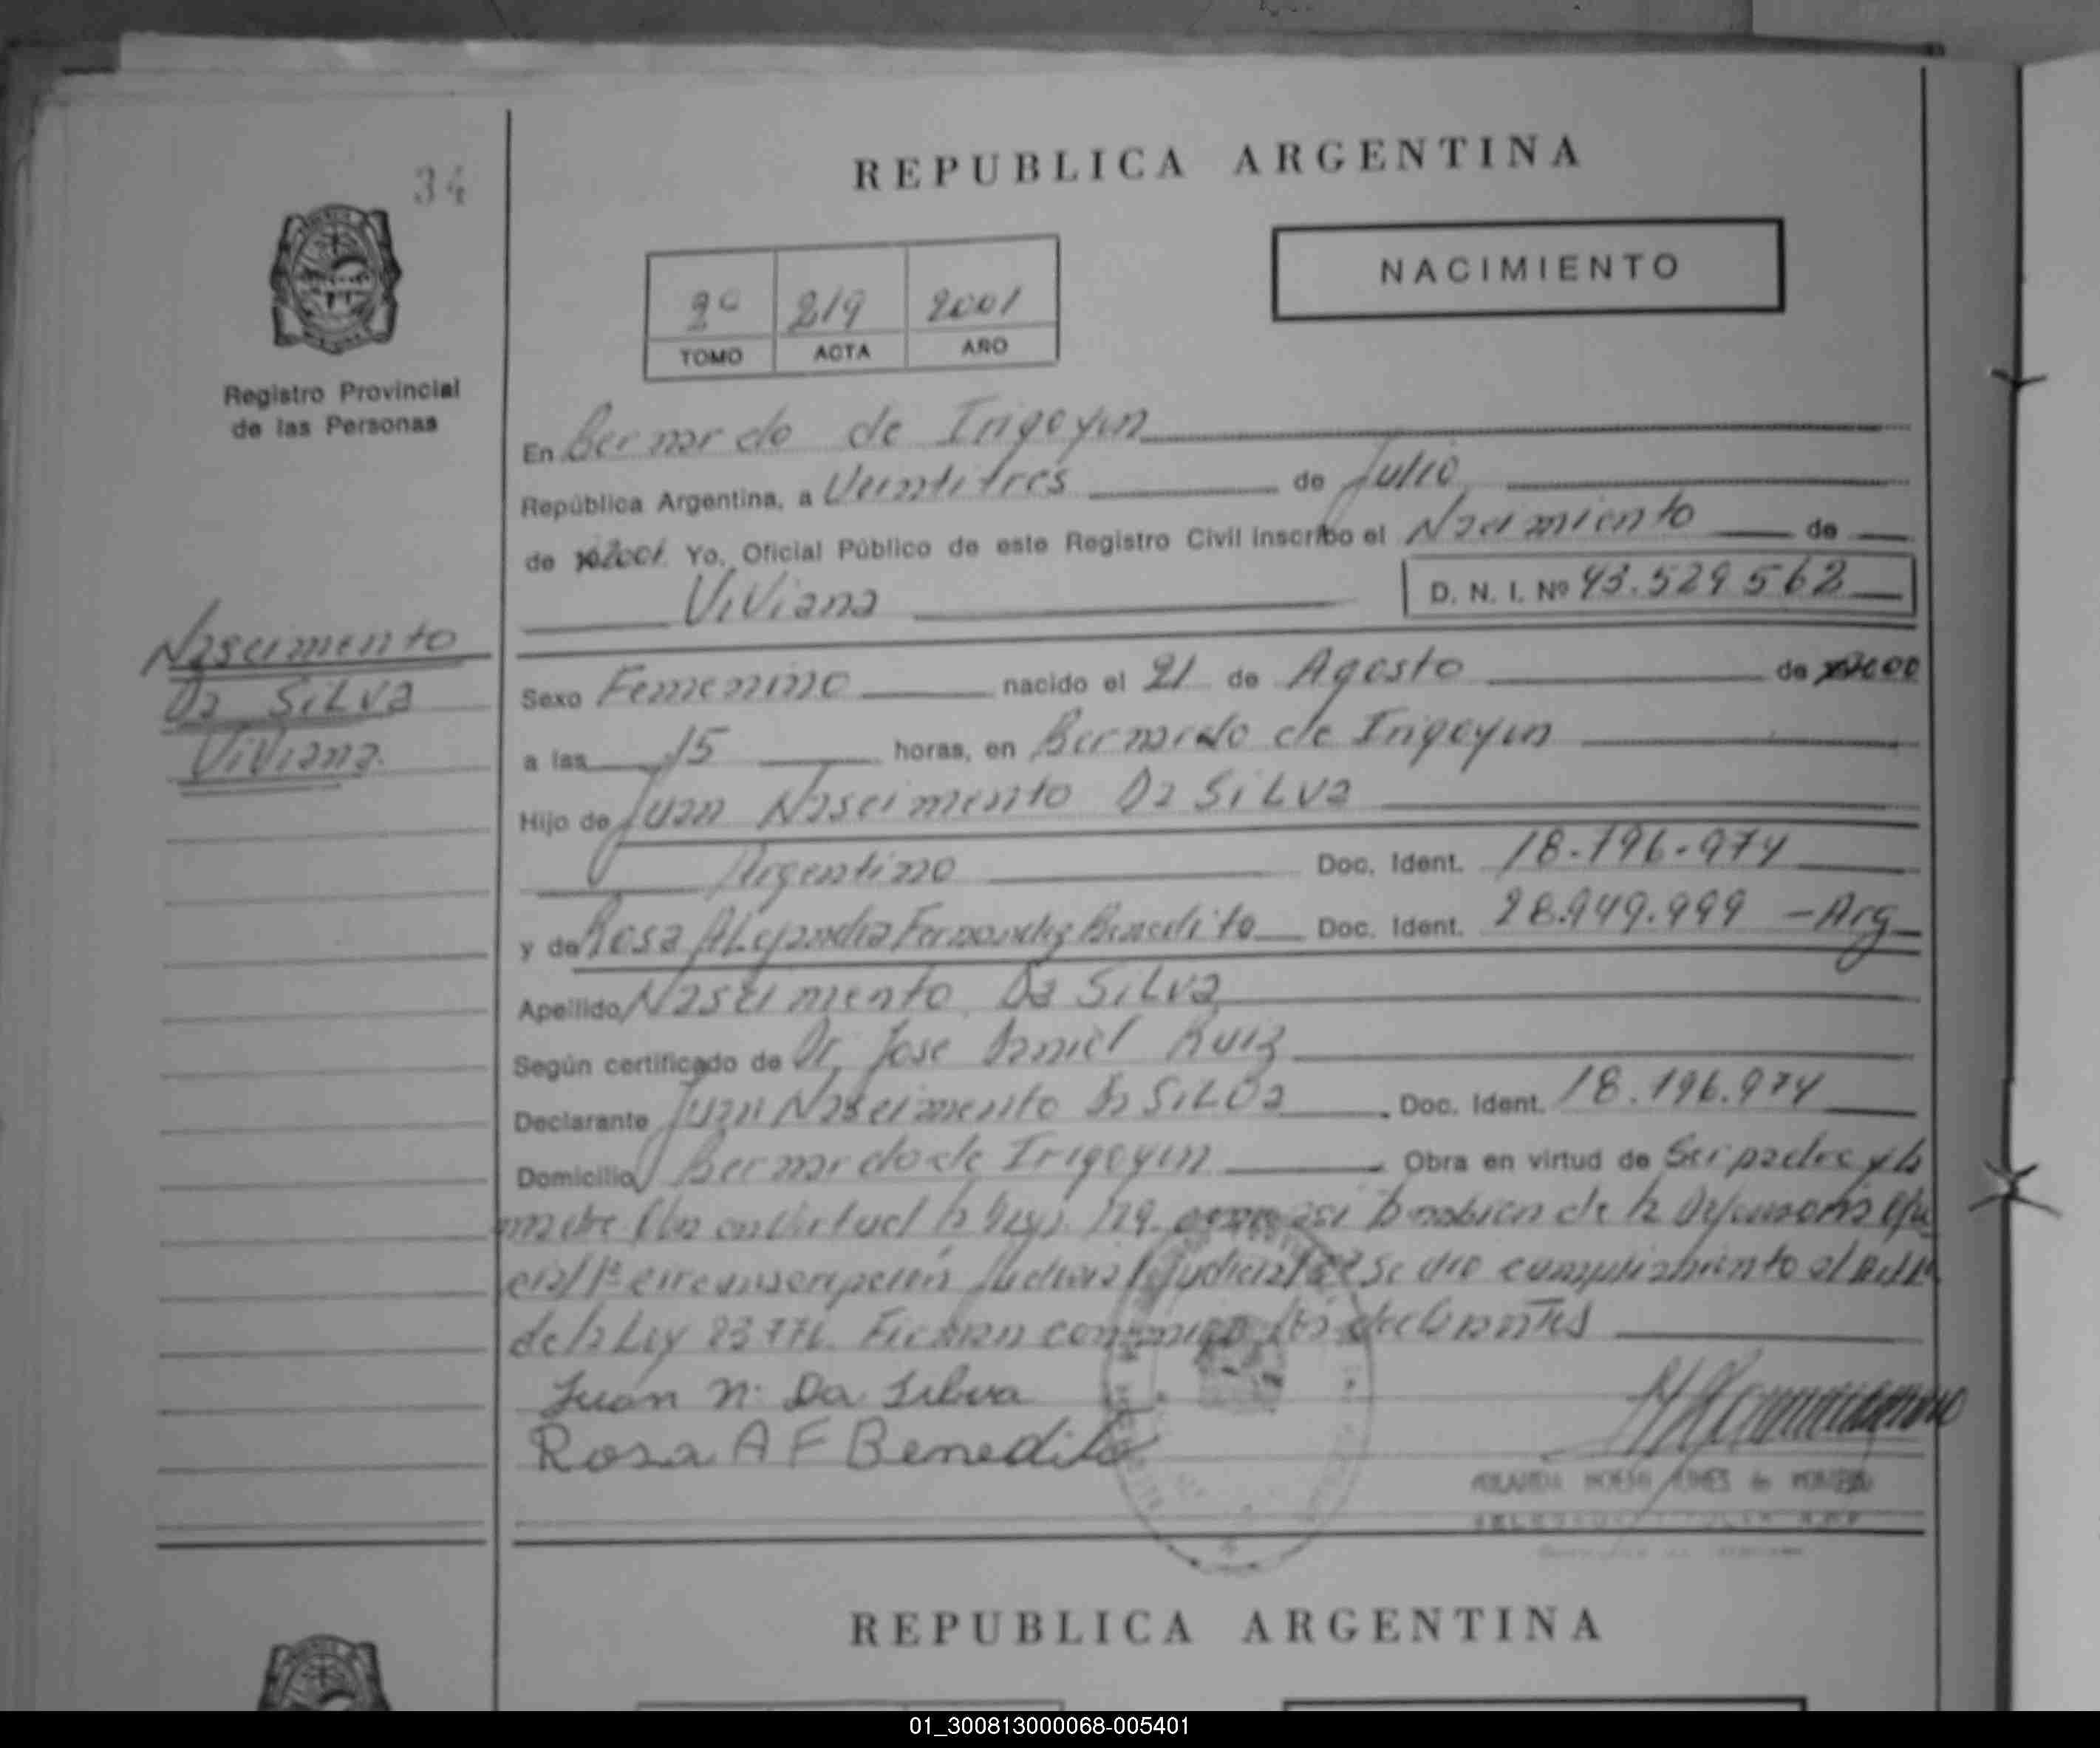 34
REPUBLICA ARGENTINA
NACIMIENTO
2º 219 2001
TOMO ACTA AÑO
Registro Provincial
de las Personas
En Bernardo de Irigoyen
República Argentina, a Veintitres de Julio
de 2001 Yo, Oficial Público de este Registro Civil inscribo el Nacimiento de
Viviana D. N. I. Nº 43.529562
Nascimento
Da Silva
Viviana
Sexo Femenino nacido el 21 de Agosto de 2000
a las 15 horas, en Bernardo de Irigoyen
Hijo de Juan Nascimento Da Silva
Argentino Doc. Ident. 18.196.974
y de Rosa Alejandra Fernandez Benedito Doc. Ident. 28.949.999 - Arg
Apellido Nascimento Da Silva
Según certificado de Dr. Jose Daniel Ruiz
Declarante Juan Nascimento Da Silva Doc. Ident. 18.196.974
Domicilio Bernardo de Irigoyen Obra en virtud de Ser padre y la
madre en virtud de la
circunscripción se dio cumplimiento al
de la Ley 23776. Firman conmigo los declarantes
Juan N. Da Silva
Rosa A F Benedito
REPUBLICA ARGENTINA
01_300813000068-005401